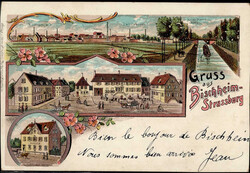 Gruss
aus
Bischheim-
Strassburg
Bien le bonjour de Bischheim
Nous sommes bien arrivés
Jean